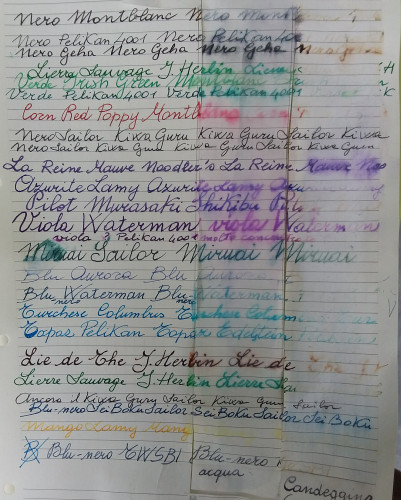 Nero Montblanc Nero Mont
Nero Pelikan 4001 Nero Pelikan 400
Nero Geha Nero Geha Nero Geha
Lierre Sauvage J. Herbin Lierre
Verde Irish Green Montblanc
Verde Pelikan 4001 Verde Pelikan 4001
Corn Red Poppy Montbl
Nero Sailor Kiwa Guru Kiwa Guru Sailor Kiwa
Nero Sailor Kiwa Guru Kiwa Guru Sailor Kiwa Guru
La Reine Mauve Noodler's La Reine Mauve Noo
Azurite Lamy Azurite Lamy Azu
Pilot Murasaki Shikibu Pil
Viola Waterman viola Waterman
viola Pelikan 4001 molto
Miruai Sailor Miruai Miruai
Blu Aurora Blu
Blu nero Waterman Blu-nero Waterman
Turchese Columbus Turchese Colum
Topaz Pelikan Topaz Edelstein
Lie de Thé J. Herbin Lie de Thé
Lierre Sauvage J. Herbin Lierre Sau
Ancora Kiwa Guru Sailor Kiwa Guru Sailor
Blu-nero Sei Boku Sailor Sei Boku Sailor Sei Boku
Mango Lamy Mang
Blu-nero TWSBI Blu-nero
acqua
Candeggina